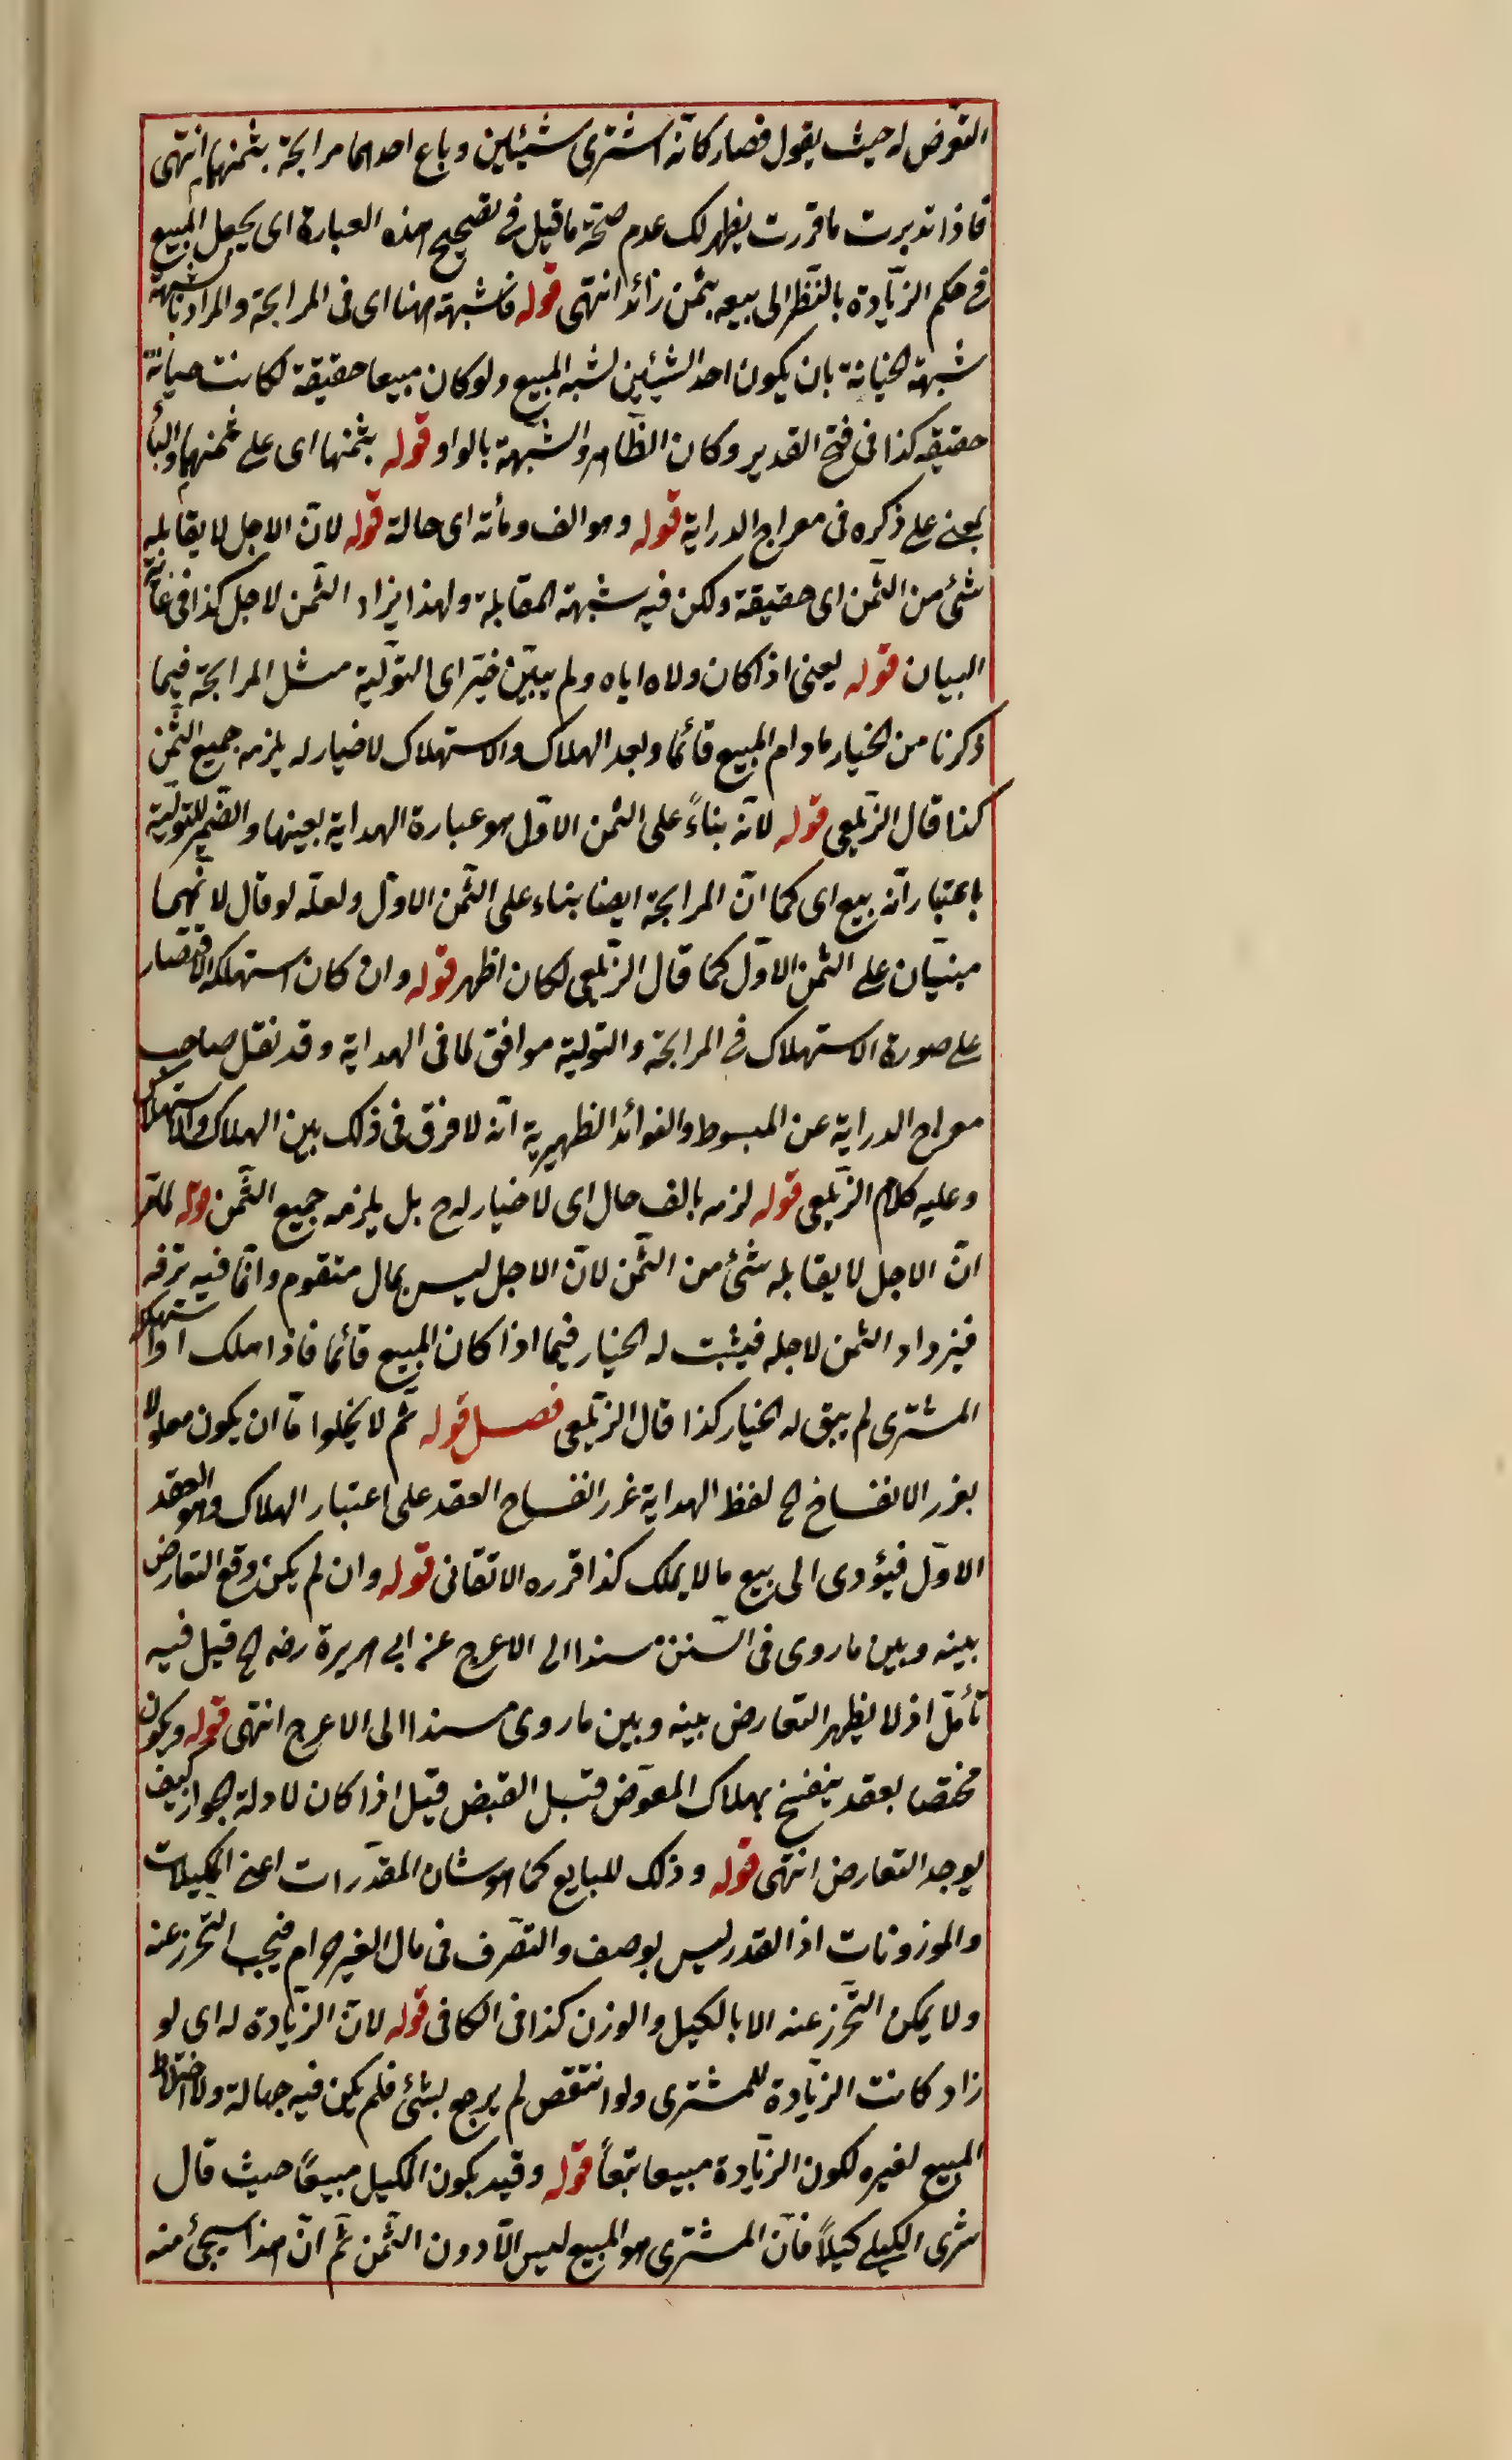 التعرّض له حيث يقول فصار كانّه اشترى شيئين وباع احدهما مرابحة بثمنهما انتهى
فاذا تدبرت ما قررت يظهر لك عدم صحّة ما قيل فى تصحيح هذه العبارة اى يجعل المبيع
فى حكم الزّيادة بالنّظر الى بيعه بثمن زائد انتهى قوله فاشبهة هنا اى فى المرابحة والمراد بالشبهة
شبهة الخيانة بان يكون احد الشيئين لشبه المبيع ولو كان مبيعا حقيقة لكانت خيانة
حقيقه كذا فى فتح القدير وكان الظّاهر والشّبهة بالواو قوله بثمنها اى على ثمنهما والباء
بمعنى على ذكره فى معراج الدراية قوله وهو الف ومأته اى حالة قوله لانّ الاجل لا يقابله
شئ من الثّمن اى حقيقة ولكن فيه شبهة المقابلة ولهذا يزاد الثّمن لاجل كذا فى غاية
البيان قوله يعنى اذا كان ولاه اياه ولم يبيّن خيّر اى التوّلية مثل المرابحة فيما
ذكرنا من الخيار مادام المبيع قائما وبعد الهلاك والاستهلاك لا خيار له يلزمه جميع الثّمن
كذا قال الزّيلعى قوله لانّه بناءً على الثمن الاوّل هو عبارة الهداية بعينها والضّمير للتوليّة
باعتبار انّه بيع اى كما انّ المرابحة ايضا بناء على الثّمن الاوّل ولعلّه لو قال لانّهما
مبنيّان على الثّمن الاوّل كما قال الزّيلعى لكان اظهر قوله وان كان استهلكه الاقتصار
على صورة الاستهلاك فى المرابحة والتولية موافق لما فى الهداية وقد نقل صاحب
معراج الدراية عن المبسوط والفوائد الظهيرية انّه لا فرق فى ذلك بين الهلاك والاستهلاك
وعليه كلام الزّيلعى قوله لزمه بالف حال اى لا خيار له ح بل يلزمه جميع الثّمن قوله لما مرّ
انّ الاجل لا يقابله شئ من الثّمن لانّ الاجل ليس بمال متقوم وانّما فيه ترفه
فيزداد الثمن لاجله فيثبت له الخيار فيما اذا كان المبيع قائما فاذا هلك او استهلك
المشترى لم يبق له الخيار كذا قال الزّيلعى فصل قوله ثم لا يخلوا امّا ان يكون معلولا
بغرر الانفساخ الخ لفظ الهداية غرر انفساخ العقد على اعتبار الهلاك وهو العقد
الاوّل فيؤدى الى بيع ما لا يملك كذا قرره الاتقانى قوله وان لم يكن وقع التعارض
بينه وبين ما روى فى السّنن مسندا الى الاعرج عن ابى هريرة رضه الخ قيل فيه
تأمّل اذ لا يظهر التعارض بينه وبين ما روى مسندا الى الاعرج انتهى قوله ويكون
مختصا بعقد ينفسخ بهلاك المعوّض قبل القبض قيل اذا كان لادلة الجواز كيف
يوجد التعارض انتهى قوله وذلك للبايع كما هو شان المقدّرات اعنى المكيلات
والموزونات اذ القدر ليس بوصف والتصّرف فى مال الغير حرام فيجب التحرّز عنه
ولا يمكن التّحرّز عنه الا بالكيل والوزن كذا فى الكافى قوله لانّ الزّيادة له اى لو
زاد كانت الزّيادة للمشترى ولو انتقص لم يرجع بشئ فلم يكن فيه جهالة ولا اختلاط
المبيع لغيره لكون الزّيادة مبيعا تبعاً قوله وقيد بكون الكيل مبيعًا حيث قال
شرى الكيلى كيلاً فانّ المشترى هو المبيع ليس الّا دون الثّمن ثّم انّ هذا سيجئ منه